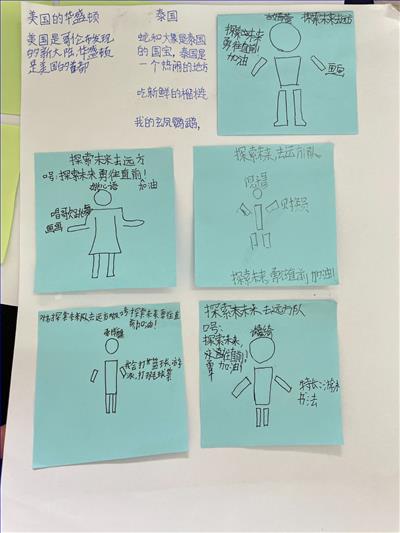 美国的华盛顿
美国是哥伦布发现
的新大陆,华盛顿
是美国的首都
泰国
蛇和大象是泰国
的国宝,泰国是
一个热闹的地方
吃新鲜的榴梿
我的玄凤鹦鹉,
探索未来去远方
探索未来
勇往直前!
加油
画画
探索未来去远方
口号:探索未来 勇往直前!
加油
唱歌跳舞
画画
探索未来,去远方队。
探索未来,勇往直前,加油!
探索未来队去远方
口号 探索未来 勇往直前
加油!
我会打篮球,游
泳,打
探索未来 去远方队
口号:
探索未来,
勇往直前!
加油!
特长:游泳
书法